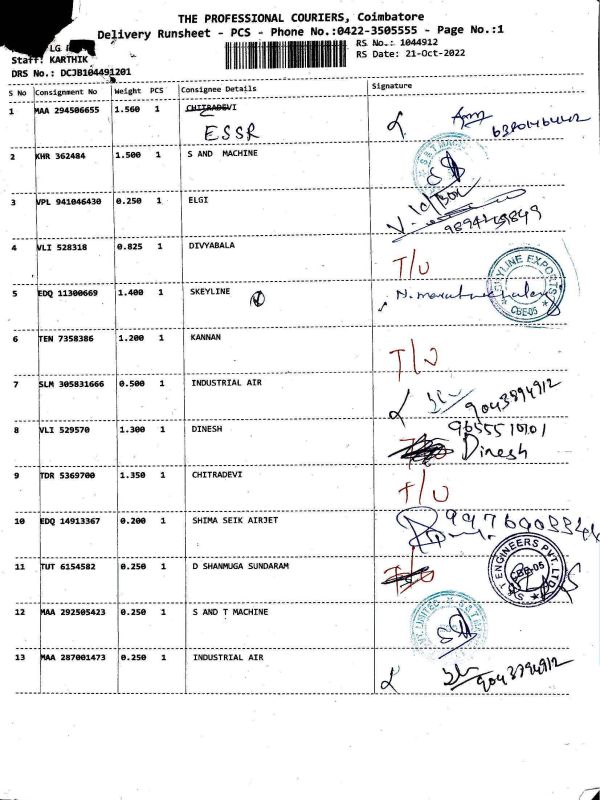 THE PROFESSIONAL COURIERS, Coimbatore
Delivery Runsheet - PCS - Phone No.:0422-3505555 - Page No.:1
LG
RS No.: 1044912
Staff: KARTHIK
RS Date: 21-Oct-2022
DRS No.: DCJB104491201
S No Consignment No Weight PCS Consignee Details Signature
1 MAA 294506655 1.560 1 CHITRADEVI
ESSR
2 KHR 362484 1.500 1 S AND MACHINE
3 VPL 941046430 0.250 1 ELGI
4 VLI 528318 0.825 1 DIVYABALA T/U
SKYLINE EXPORTS CBE-05
5 EDQ 11300669 1.400 1 SKEYLINE
6 TEN 7358386 1.200 1 KANNAN T/U
7 SLM 305831666 0.500 1 INDUSTRIAL AIR 9043894912
8 VLI 529570 1.300 1 DINESH
Dinesh
9 TDR 5369700 1.350 1 CHITRADEVI T/U
10 EDQ 14913367 0.200 1 SHIMA SEIK AIRJET
11 TUT 6154582 0.250 1 D SHANMUGA SUNDARAM
S&T ENGINEERS PVT. LTD. CBE-05
12 MAA 292505423 0.250 1 S AND T MACHINE
13 MAA 287001473 0.250 1 INDUSTRIAL AIR 9043794912